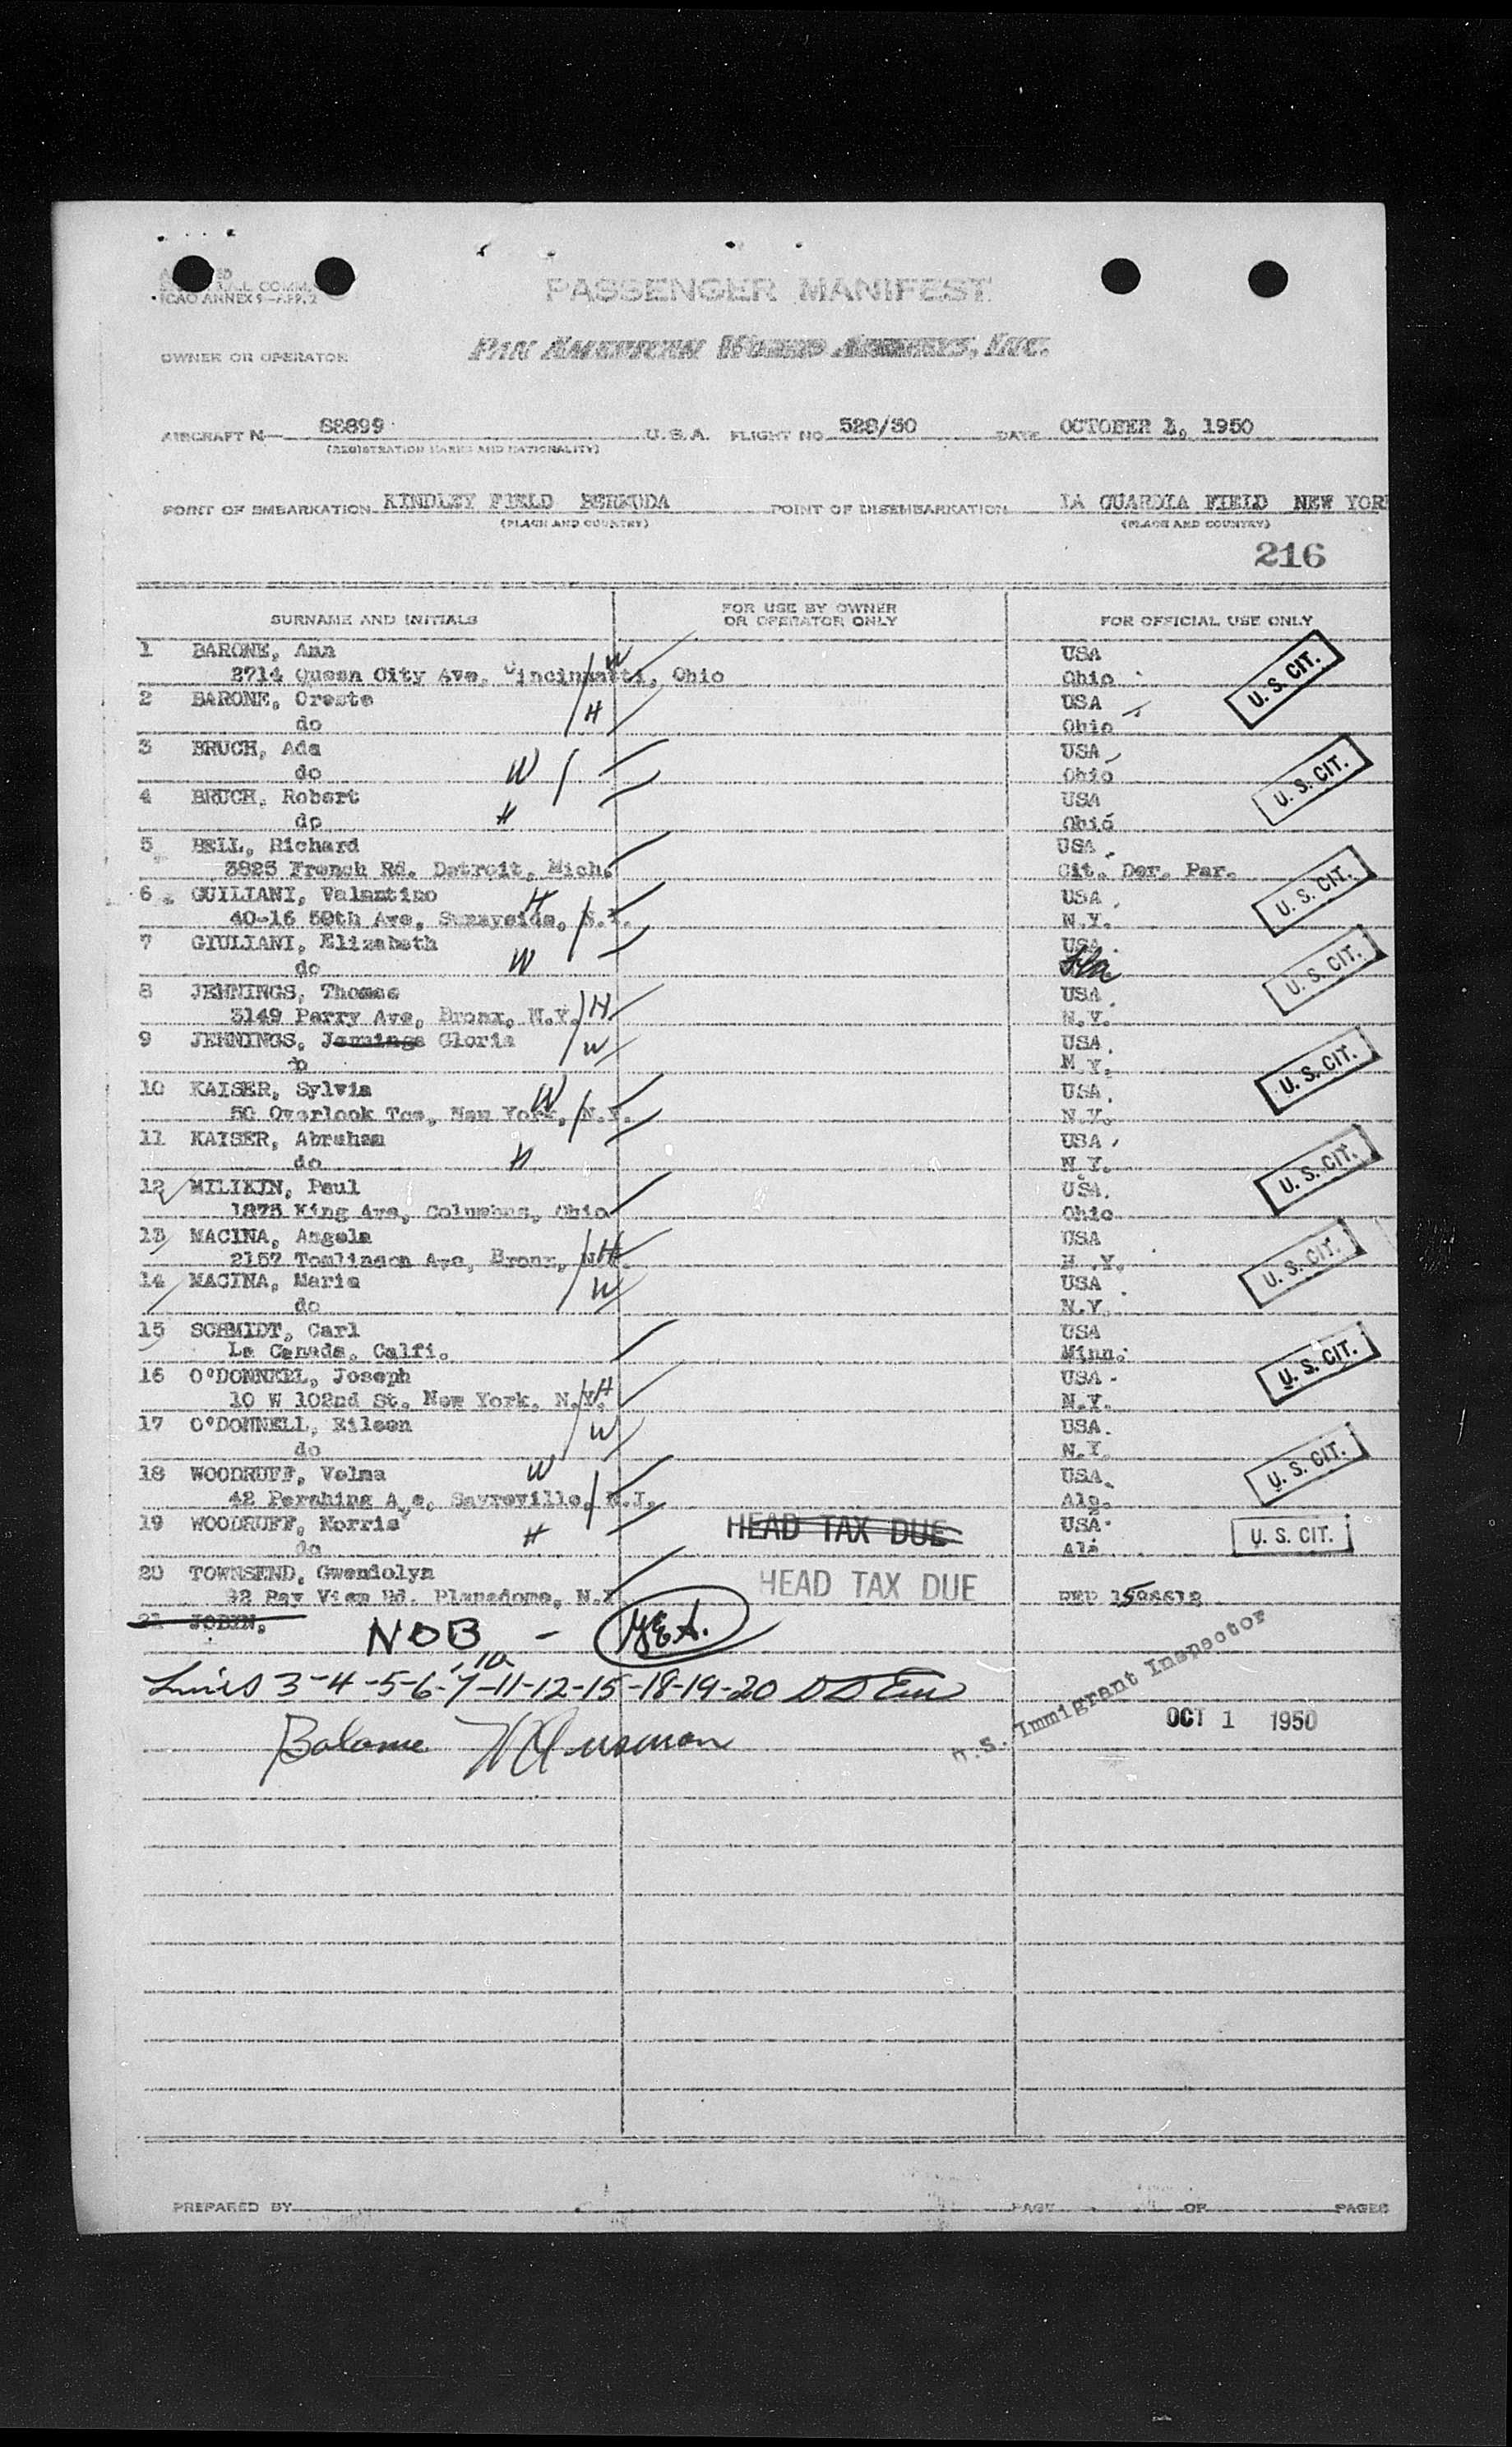 ICAO ANNEX 9—APP. 2
PASSENGER MANIFEST
OWNER OR OPERATOR
PAN AMERICAN WORLD AIRWAYS, INC.
AIRCRAFT N— 88899 U.S.A. FLIGHT NO. 528/30 DATE OCTOBER 1, 1950
(REGISTRATION MARKS AND NATIONALITY)
POINT OF EMBARKATION KINDLEY FIELD BERMUDA POINT OF DISEMBARKATION LA GUARDIA FIELD NEW YORK
(PLACE AND COUNTRY) (PLACE AND COUNTRY)
216
SURNAME AND INITIALS FOR USE BY OWNER OR OPERATOR ONLY FOR OFFICIAL USE ONLY
1 BARONE, Ann W USA
2714 Queen City Ave, Cincinnatti, Ohio Ohio U. S. CIT.
2 BARONE, Oreste USA
do H Ohio
3 BRUCH, Ada USA
do W Ohio U. S. CIT.
4 BRUCH, Robert USA
do H Ohio
5 BELL, Richard USA
3825 French Rd. Detroit, Mich. Cit. Der. Par.
6 GUILIANI, Valantino H USA U. S. CIT.
40-16 50th Ave, Sunnyside, N.Y. N.Y.
7 GIULIANI, Elizabeth USA
do W Fla U. S. CIT.
8 JENNINGS, Thomas H USA
3149 Perry Ave, Bronx, N.Y. N.Y.
9 JENNINGS, Jennings Gloria W USA
do N.Y. U. S. CIT.
10 KAISER, Sylvia W USA
50 Overlook Tce, New York, N.Y. N.Y.
11 KAISER, Abraham USA
do H N.Y. U. S. CIT.
12 MILIKIN, Paul USA
1875 King Ave, Columbus, Ohio Ohio
13 MACINA, Angela H USA
2157 Tomlinson Ave, Bronx, N.Y. N.Y. U. S. CIT.
14 MACINA, Maria W USA
do N.Y.
15 SCHMIDT, Carl USA
La Canada, Calfi. Minn. U. S. CIT.
16 O'DONNELL, Joseph H USA
10 W 102nd St. New York, N.Y. N.Y.
17 O'DONNELL, Eileen W USA
do N.Y.
18 WOODRUFF, Velma W USA U. S. CIT.
42 Pershing Ave, Sayreville, N.J. Ala.
19 WOODRUFF, Norris HEAD TAX DUE USA U. S. CIT.
do H Ala
20 TOWNSEND, Gwendolyn HEAD TAX DUE
Bay View Rd. Plandome, N.Y. REP
21 JOBIN,
NOB -
Lines 3-4-5-6-7-10-11-12-15-18-19-20
U.S. Immigrant Inspector
OCT 1 1950
Balance
PREPARED BY PAGE OF PAGES